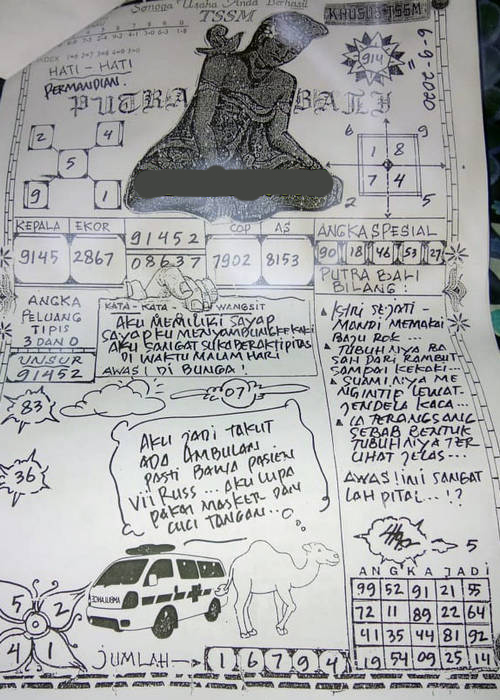 Semoga Usaha Anda Berhasil
TSSM
KHUSUS TSSM
HATI - HATI
PERMANDIAN.
PUTRA BALI
914
6-9-2020
2 4
5
9 1
6 9
1 8
7 4
2 5
KEPALA EKOR
9145 2867
91452
08637
COP AS
7902 8153
ANGKA SPESIAL
90 18 46 53 27
PUTRA BALI
BILANG:
ANGKA
PELUANG
TIPIS
3 DAN 0
UNSUR
91452
KATA - KATA WANGSIT
AKU MEMILIKI SAYAP
SAYAPKU MENYAMBUNG KE KAKI
AKU SANGAT SUKA BERAKTIPITAS
DI WAKTU MALAM HARI
AWAS! DI BUNGA!
ISTRI SEJATI -
MANDI MEMAKAI
BAJU ROK ...
TUBUHNYA BA
SAH DARI RAMBUT
SAMPAI KEKAKI...
SUAMINYA ME
NGINTIP LEWAT
JENDELA KACA...
IA TERANGSANG
SEBAB BENTUK
TUBUHNYA TER
LIHAT JELAS...
AWAS! INI SANGAT
LAH PITAL...!?
83
07
36
AKU JADI TAKUT
ADA AMBULAN
PASTI BAWA PASIEN
VIIRUSS ... AKU LUPA
PAKAI MASKER DAN
CUCI TANGAN...
5
ANGKA JADI
99 52 91 21 55
72 11 89 22 64
41 35 44 81 92
19 54 09 25 14
5 2
4 1
JUMLAH → 1 6 7 9 4